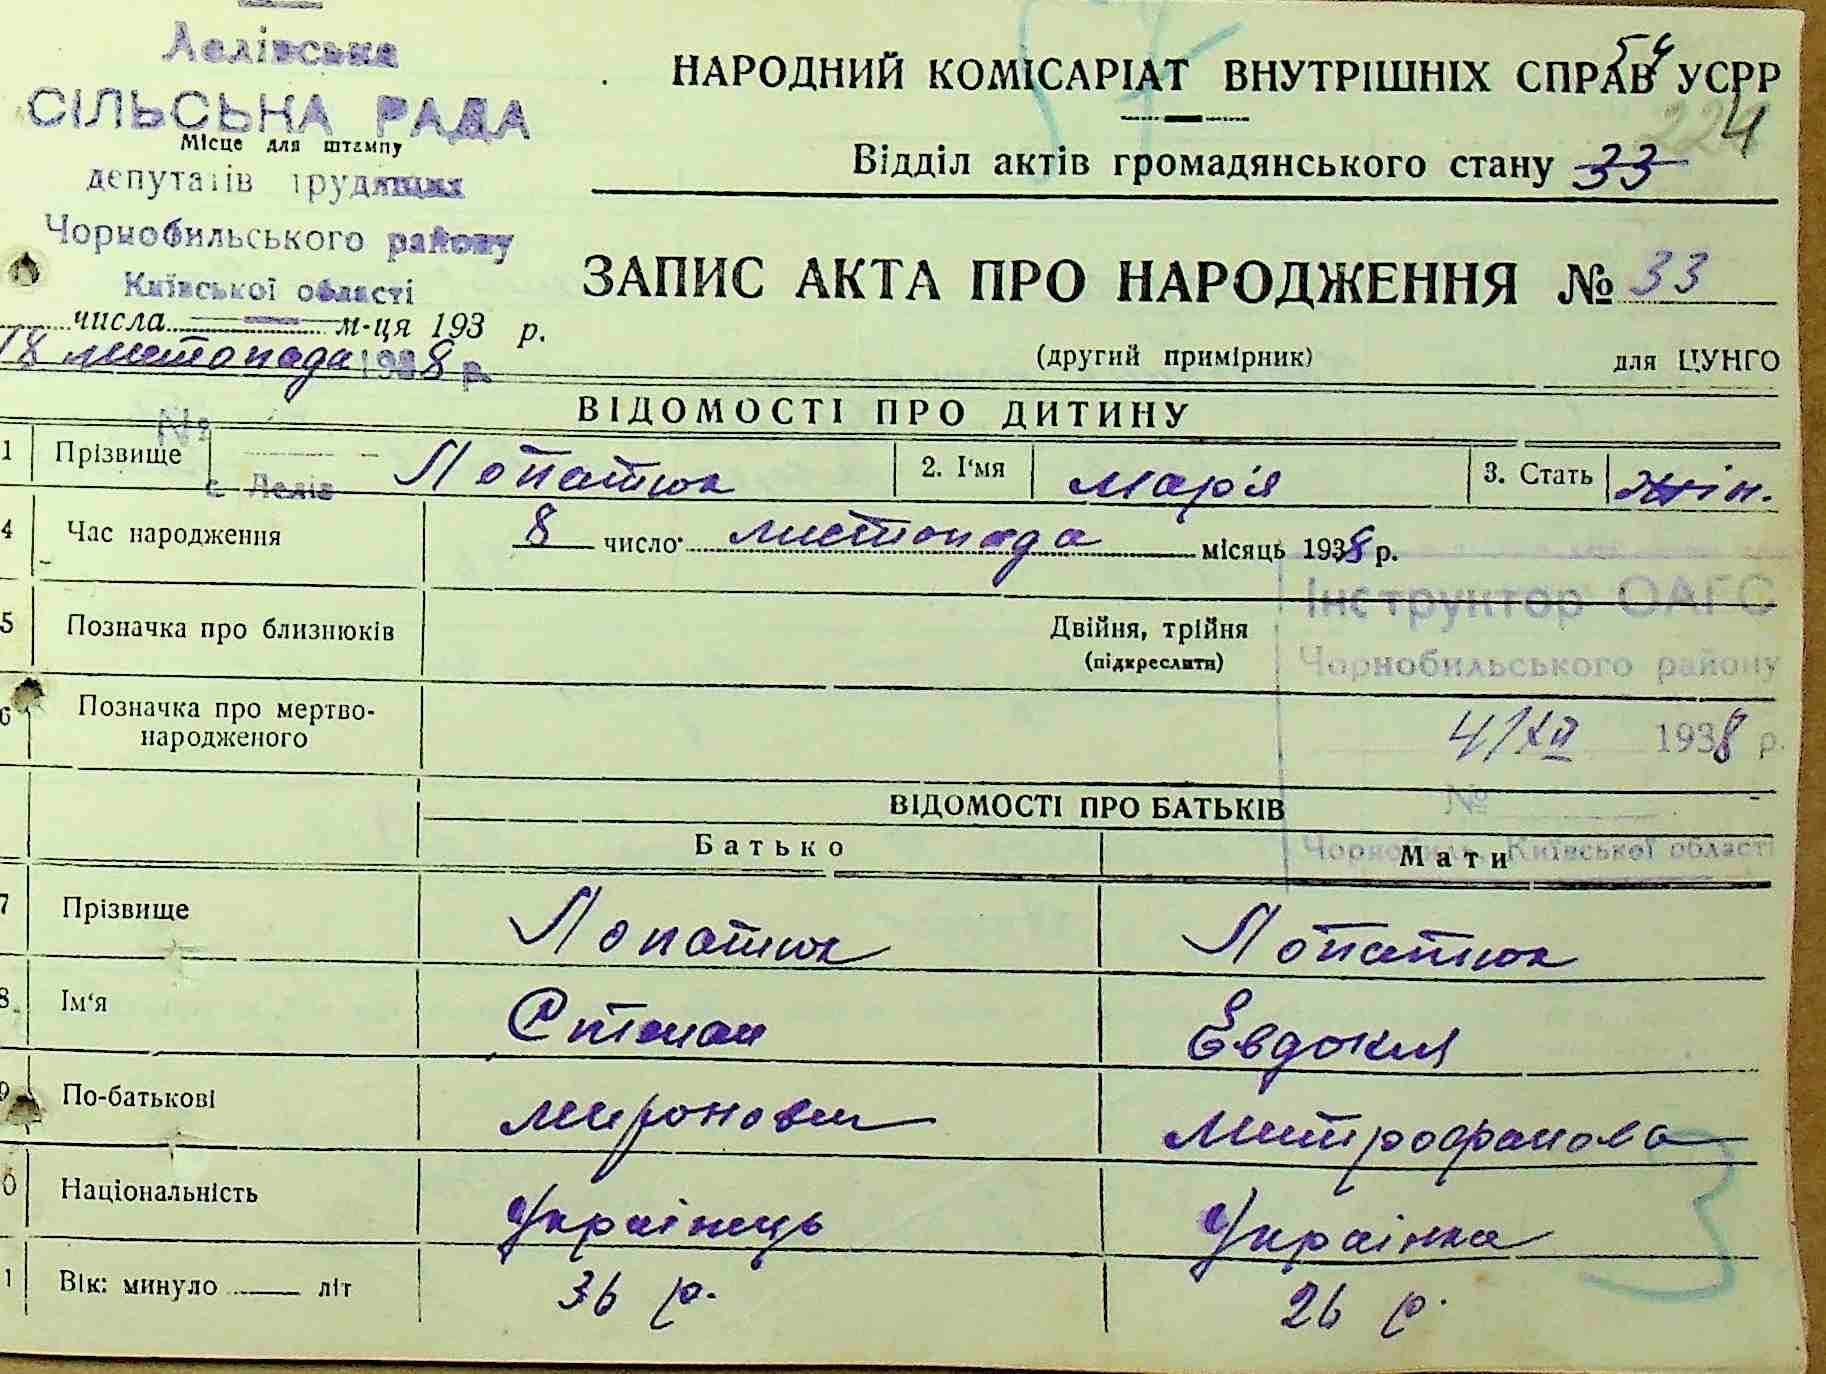 Лелівська
СІЛЬСЬКА РАДА
Місце для штампу
депутатів трудящих
Чорнобильського району
Київської області
числа м-ця 193 р.
18 листопада 1938 р.
№
с. Лелів
НАРОДНИЙ КОМІСАРІАТ ВНУТРІШНІХ СПРАВ УСРР
54
224
Відділ актів громадянського стану 33
ЗАПИС АКТА ПРО НАРОДЖЕННЯ № 33
(другий примірник) для ЦУНГО
ВІДОМОСТІ ПРО ДИТИНУ
1 Прізвище Лопатюк 2. Ім'я Марія 3. Стать жін.
4 Час народження 8 число листопада місяць 1938 р.
5 Позначка про близнюків Двійня, трійня
(підкреслити)
6 Позначка про мертво-
народженого
Інструктор ОАГС
Чорнобильського району
4/XII 1938 р.
№
Чорнобиль, Київської області
ВІДОМОСТІ ПРО БАТЬКІВ
Батько Мати
7 Прізвище Лопатюк Лопатюк
8. Ім'я Степан Евдокия
9 По-батькові Миронович Митрофанова
0 Національність Українець Українка
1 Вік: минуло літ 36 р. 26 р.